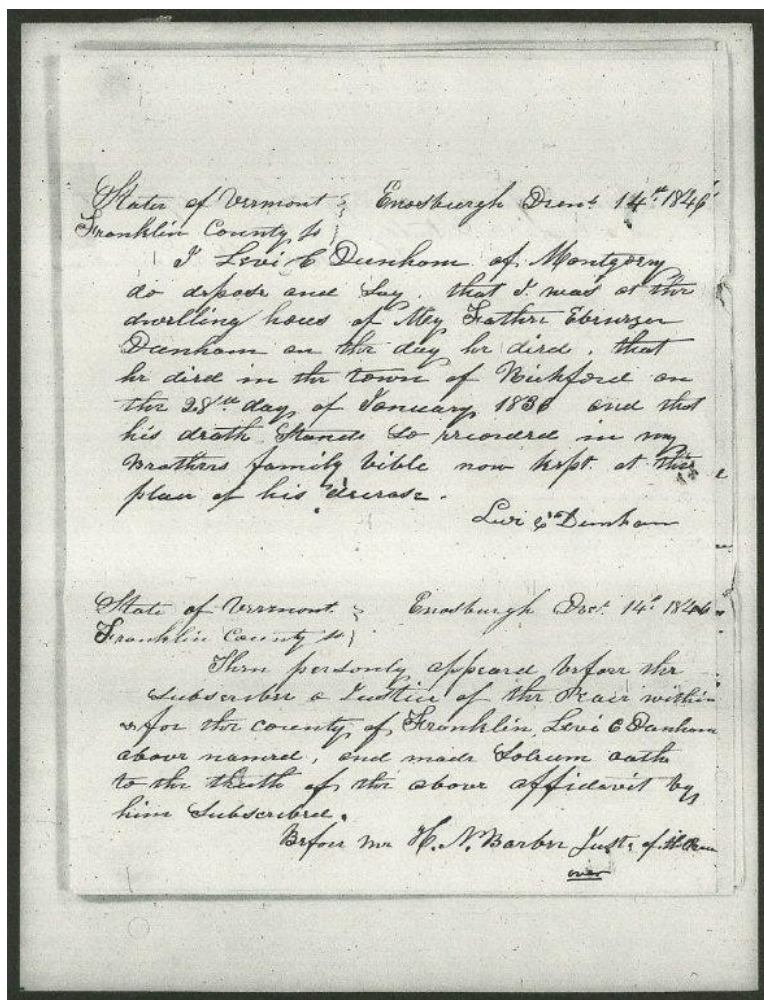 State of Vermont } Enosburgh Decr 14th 1846
Franklin County ss }
I Levi C Dunham of Montgomery
do depose and Say, that I was at the
dwelling hous of My Father Ebenezer
Dunham on the day he died, that
he died in the town of Richford on
the 28th day of January 1836 and that
his death Stands So recorded in my
Brothers family bible now kept at the
place of his decease.
Levi C Dunham
State of Vermont } Enosburgh Dec. 14th 1846
Franklin County ss }
Then personly appeared before the
Subscriber a Justice of the Peace within
& for the county of Franklin, Levi C Dunham
above named, and made Solemn oath
to the truth of the above affidavit by
him Subscribed.
Before me H. N. Barber Just. of the Peace
over